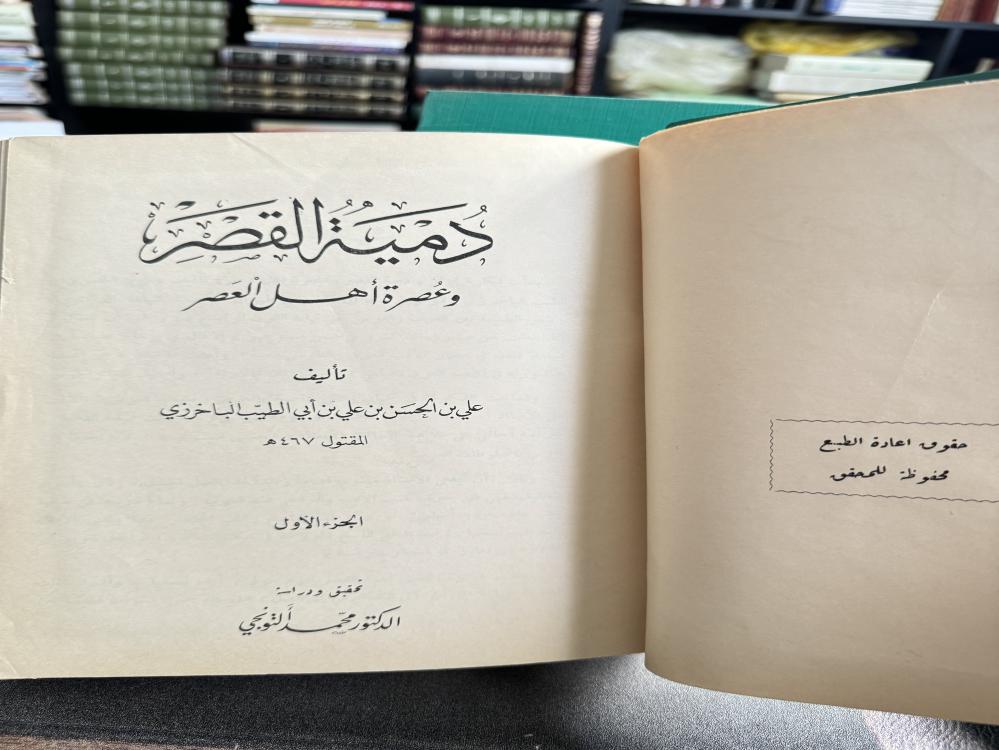 دُمْيَةُ القَصْرِ
وعُصرة أهل العَصر
تأليف
علي بن الحسَن بن علي بن أبي الطيّب الباخرزي
المقتول ٤٦٧ هـ
الجزء الأول
تحقيق ودراسة
الدكتور محمّد ألتونجي
حقوق اعادة الطبع
محفوظة للمحقق